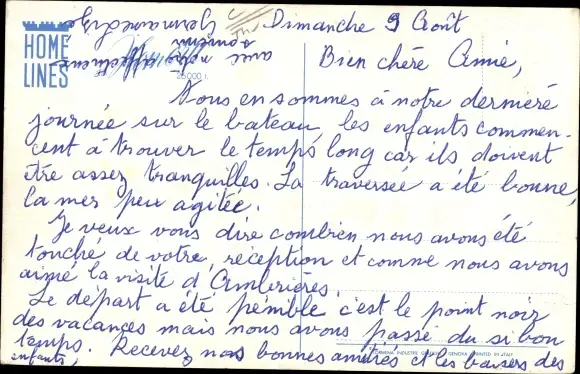 HOME
LINES
Dimanche 9 Août
Bien chère Amie,
Nous en sommes à notre dernière
journée sur le bateau, les enfants commen-
cent à trouver le temps long car ils doivent
être assez tranquilles. La traversée a été bonne,
la mer peu agitée.
Je veux vous dire combien nous avons été
touché de votre réception et comme nous avons
aimé la visite d'Ambrières.
Le départ a été pénible c'est le point noir
des vacances mais nous avons passé du si bon
temps. Recevez nos bonnes amitiés et les baisers des
enfants,
avec notre affectueux
souvenir